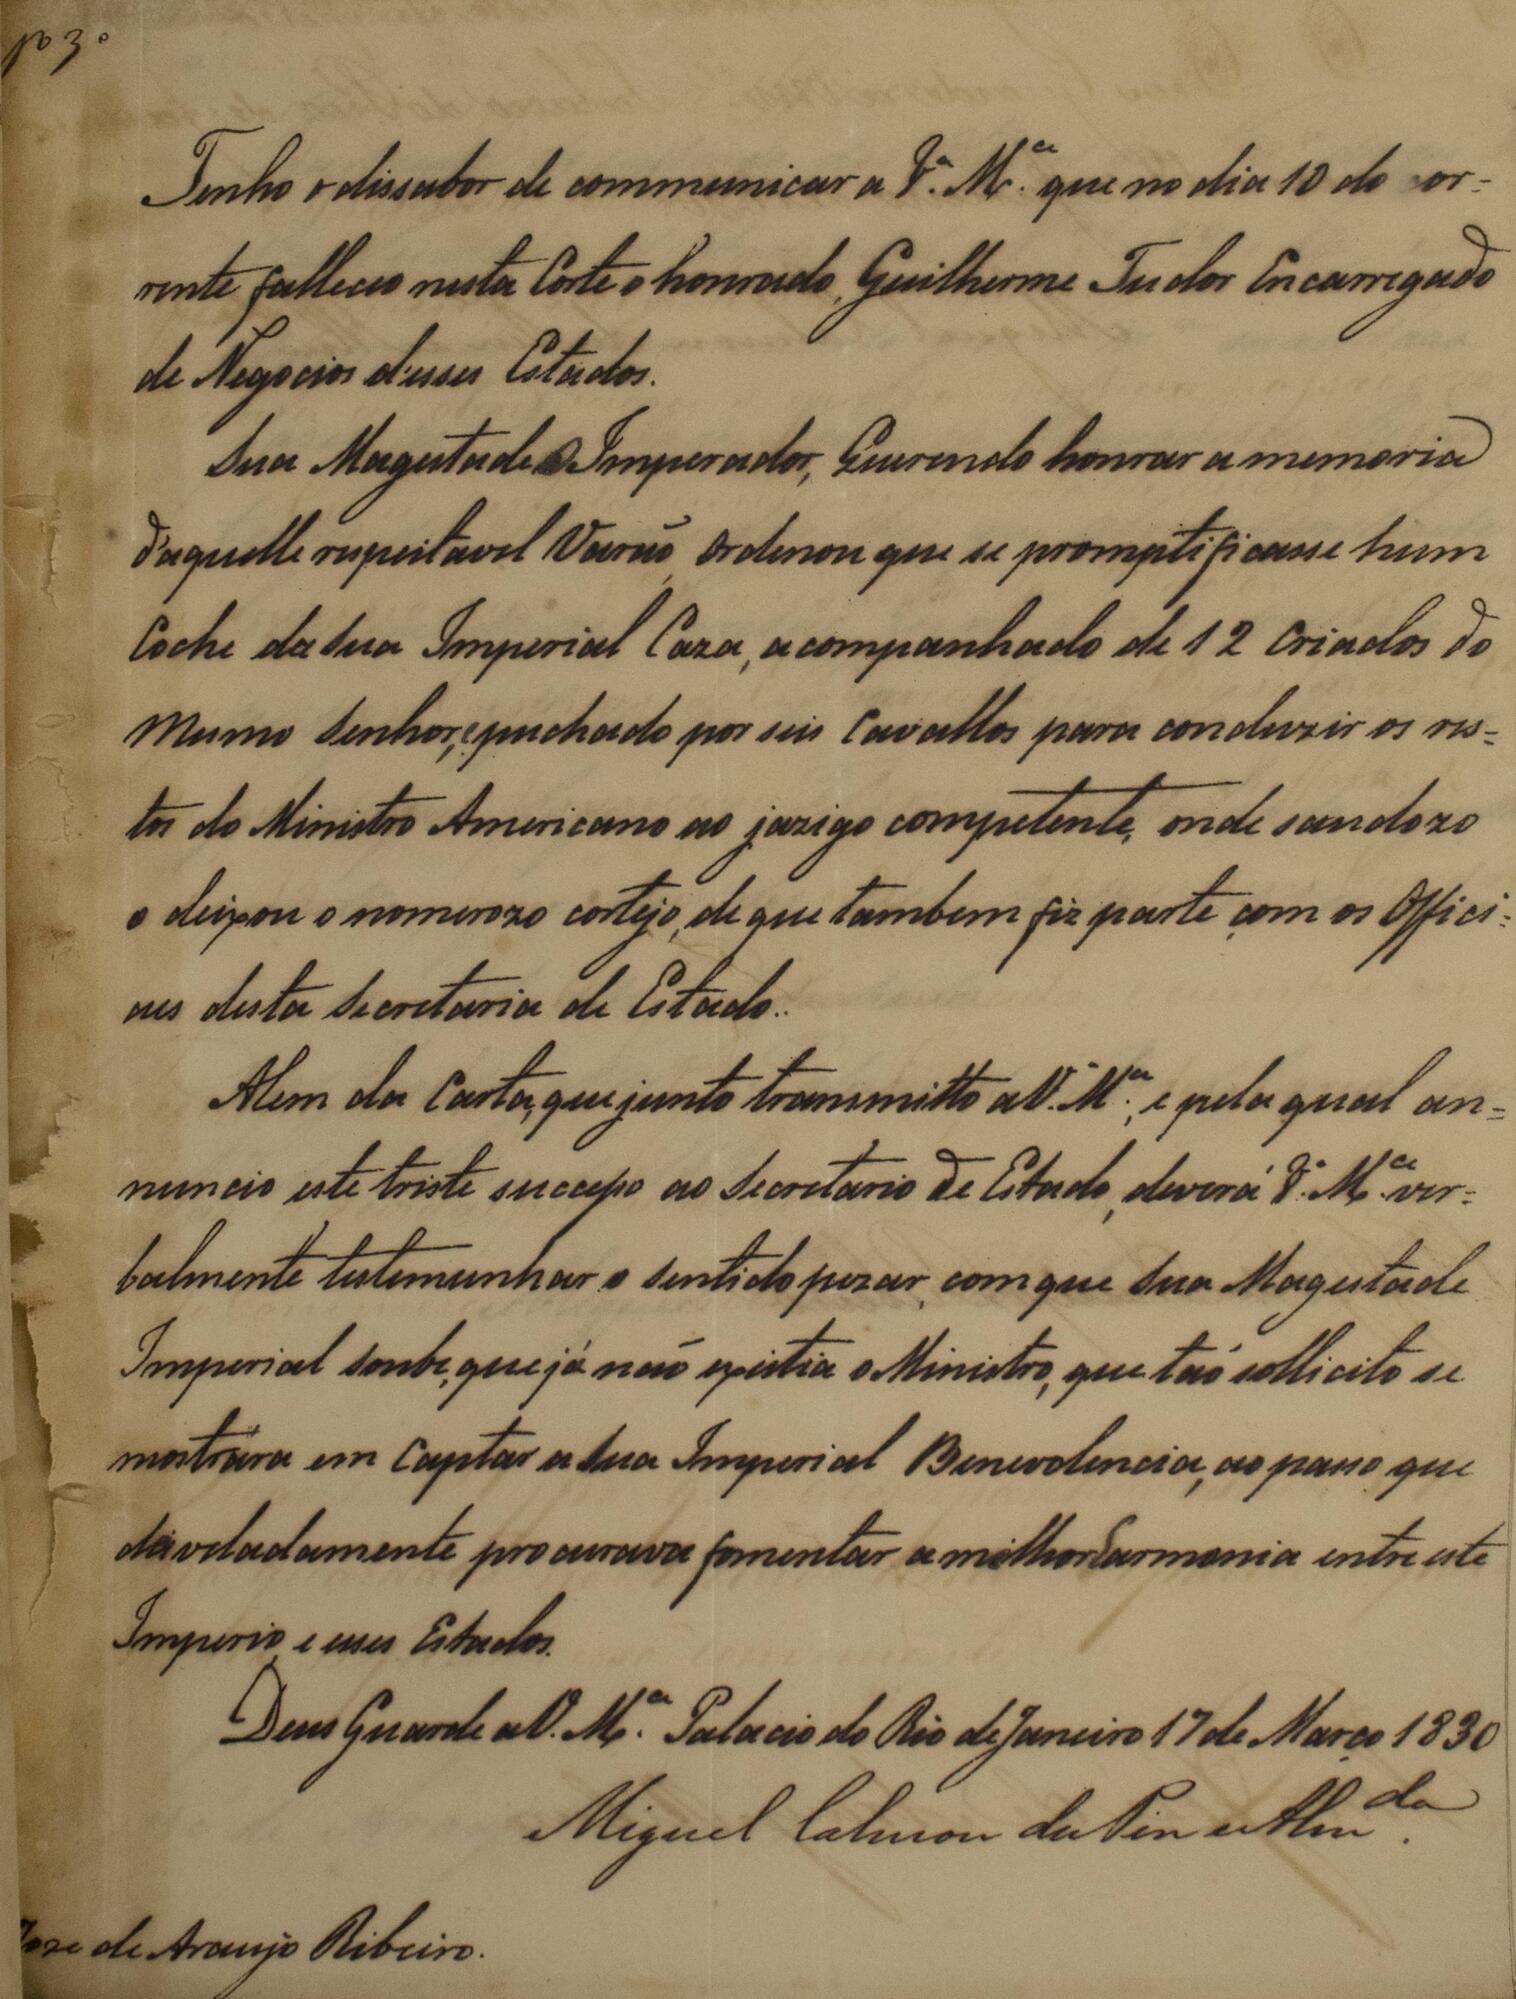 Nº 3º
Tenho o dissabor de communicar a V.ª M.ce que no dia 10 do cor=
rente falleceo nesta Corte o honrado, Guilherme Tudor Encarregado
de Negocios d'esses Estados.
Sua Magestade O Imperador, Querendo honrar a memoria
d'aquelle respeitavel Varaõ, Ordenou que se promptificasse hum
Coche da Sua Imperial Caza, acompanhado de 12 Criados do
Mesmo Senhor, e puchado por seis Cavallos para conduzir os res=
tos do Ministro Americano ao jazigo competente, onde saudozo
o deixou o nomerozo cortejo, de que tambem fiz parte com os Offici=
aes desta Secretaria de Estado..
Alem da Carta, que junto transmitto a V. M.ce, e pela qual an=
nuncio este triste successo ao Secretario de Estado, deverá V.ª M.ce ver=
balmente testemunhar o sentido pezar, com que Sua Magestade
Imperial soube, que já naõ existia o Ministro, que taõ sollicito se
mostrára em Captar a Sua Imperial Benevolencia, ao passo que
desveladamente procurava fomentar a melhor harmonia entre este
Imperio, e esses Estados.
Deus Guarde a V. M.ce Palacio do Rio de Janeiro 17 de Março 1830
Miguel Calmon du Pin e Alm.da
Joze de Araujo Ribeiro.